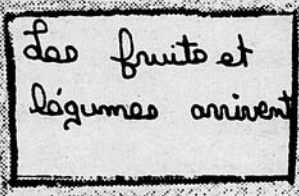 Les fruits et
légumes arrivent